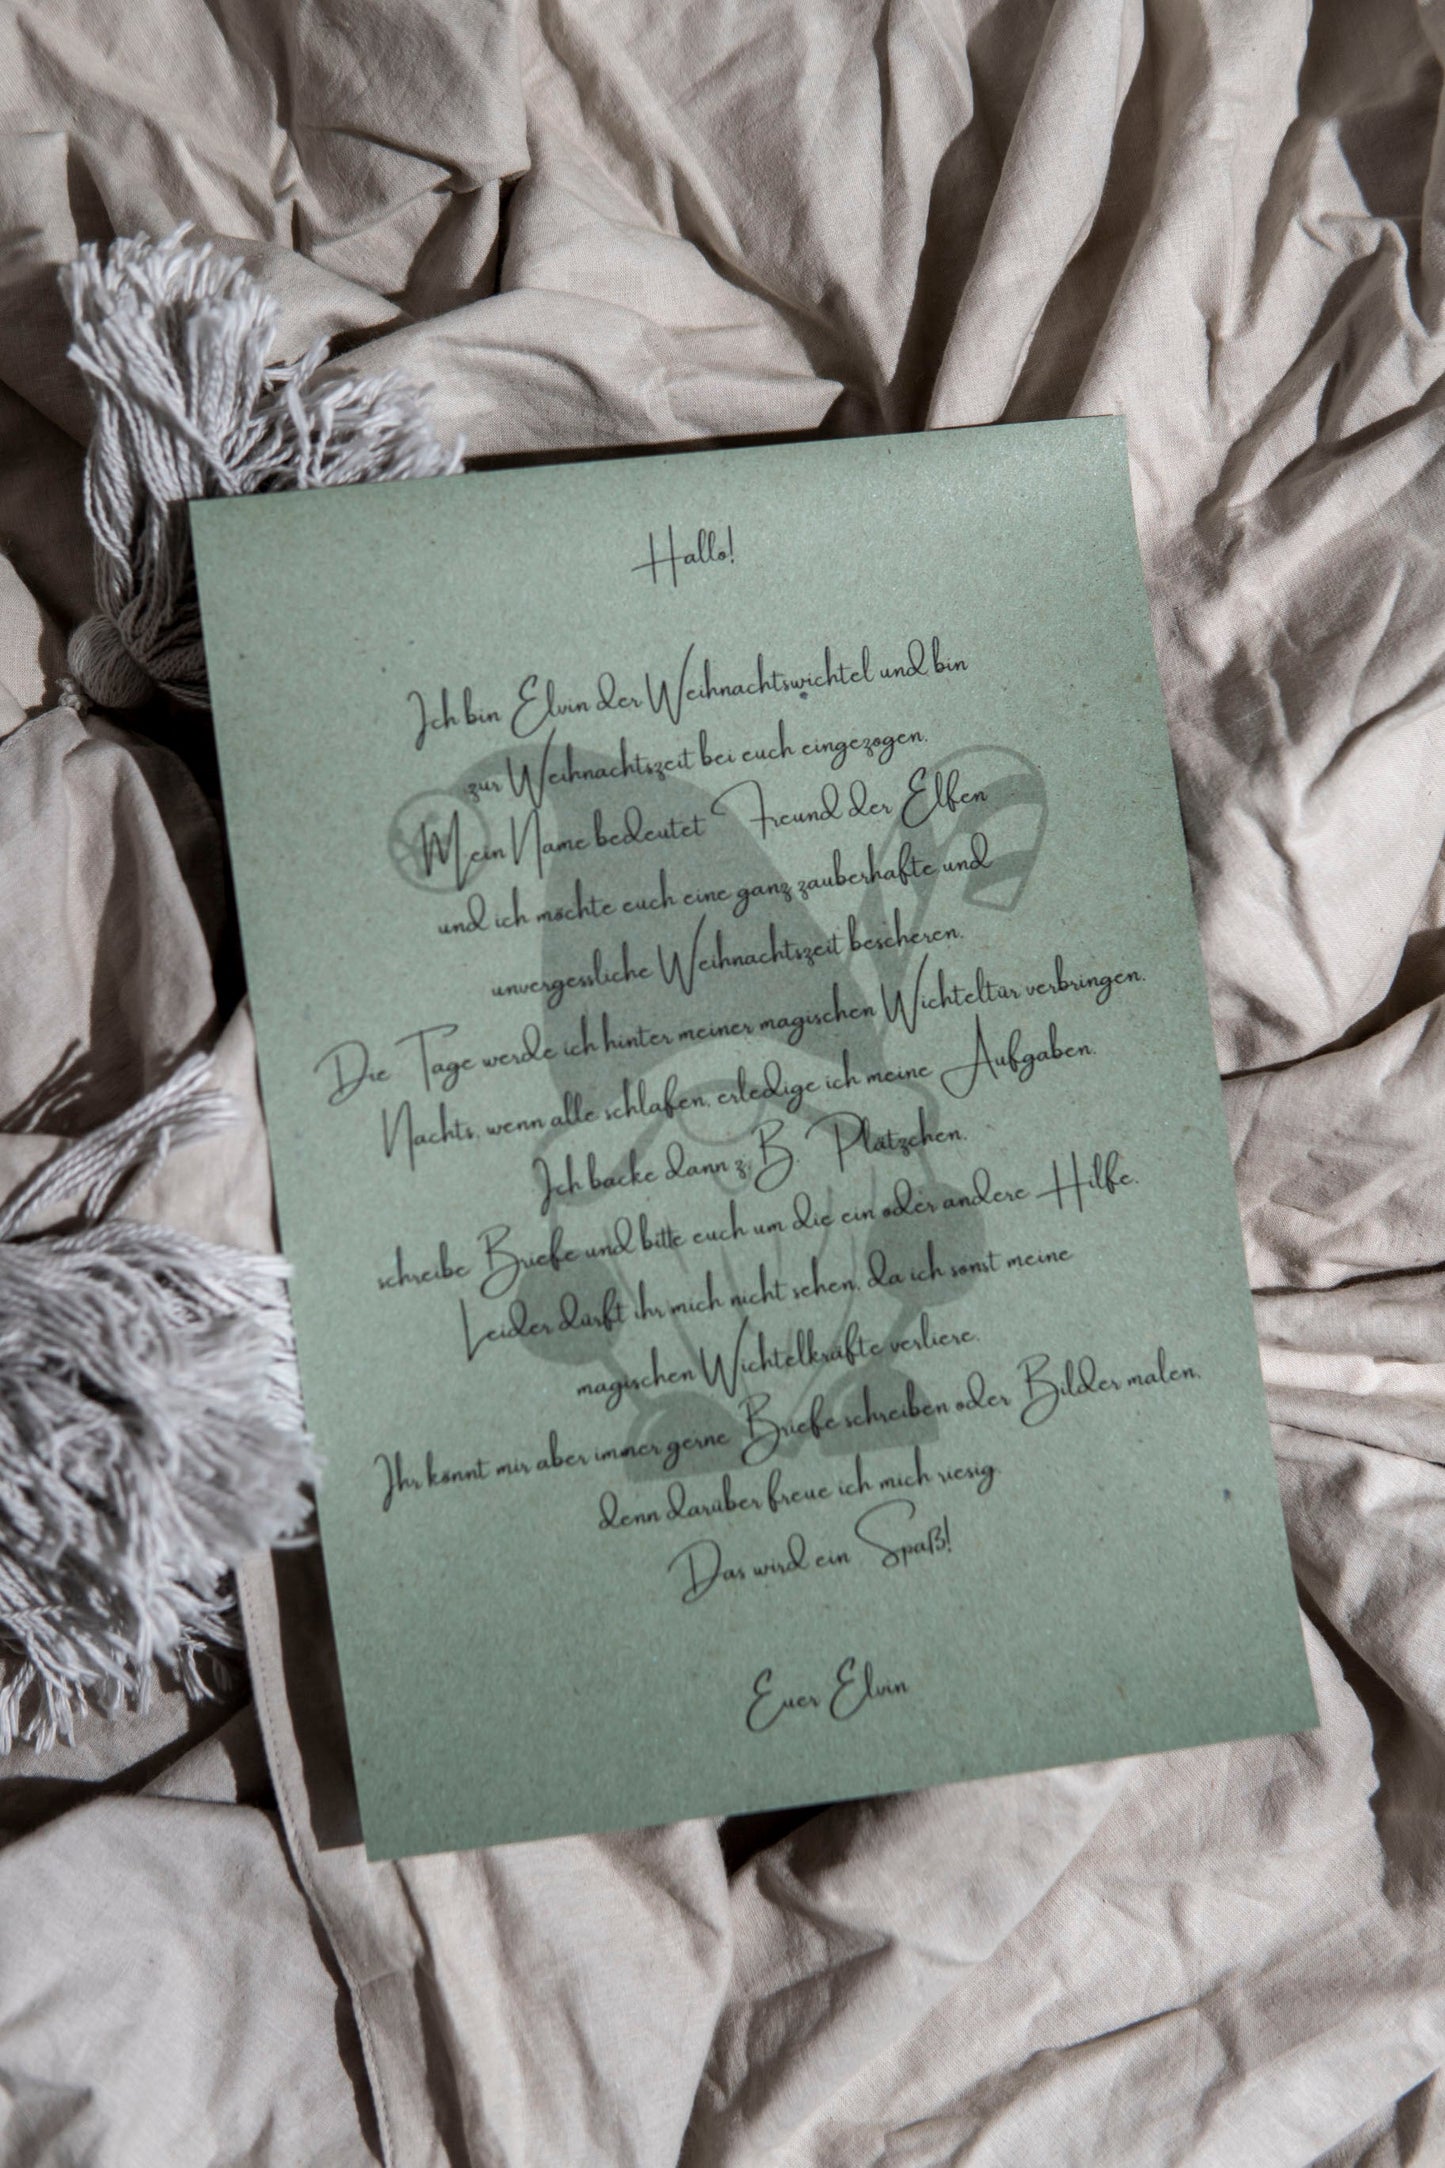 Hallo!
Ich bin Elvin der Weihnachtswichtel und bin
zur Weihnachtszeit bei euch eingezogen.
Mein Name bedeutet Freund der Elfen
und ich möchte euch eine ganz zauberhafte und
unvergessliche Weihnachtszeit bescheren.
Die Tage werde ich hinter meiner magischen Wichteltür verbringen.
Nachts, wenn alle schlafen, erledige ich meine Aufgaben.
Ich backe dann z. B. Plätzchen,
schreibe Briefe und bitte euch um die ein oder andere Hilfe.
Leider dürft ihr mich nicht sehen, da ich sonst meine
magischen Wichtelkräfte verliere.
Ihr könnt mir aber immer gerne Briefe schreiben oder Bilder malen,
denn darüber freue ich mich riesig.
Das wird ein Spaß!
Euer Elvin